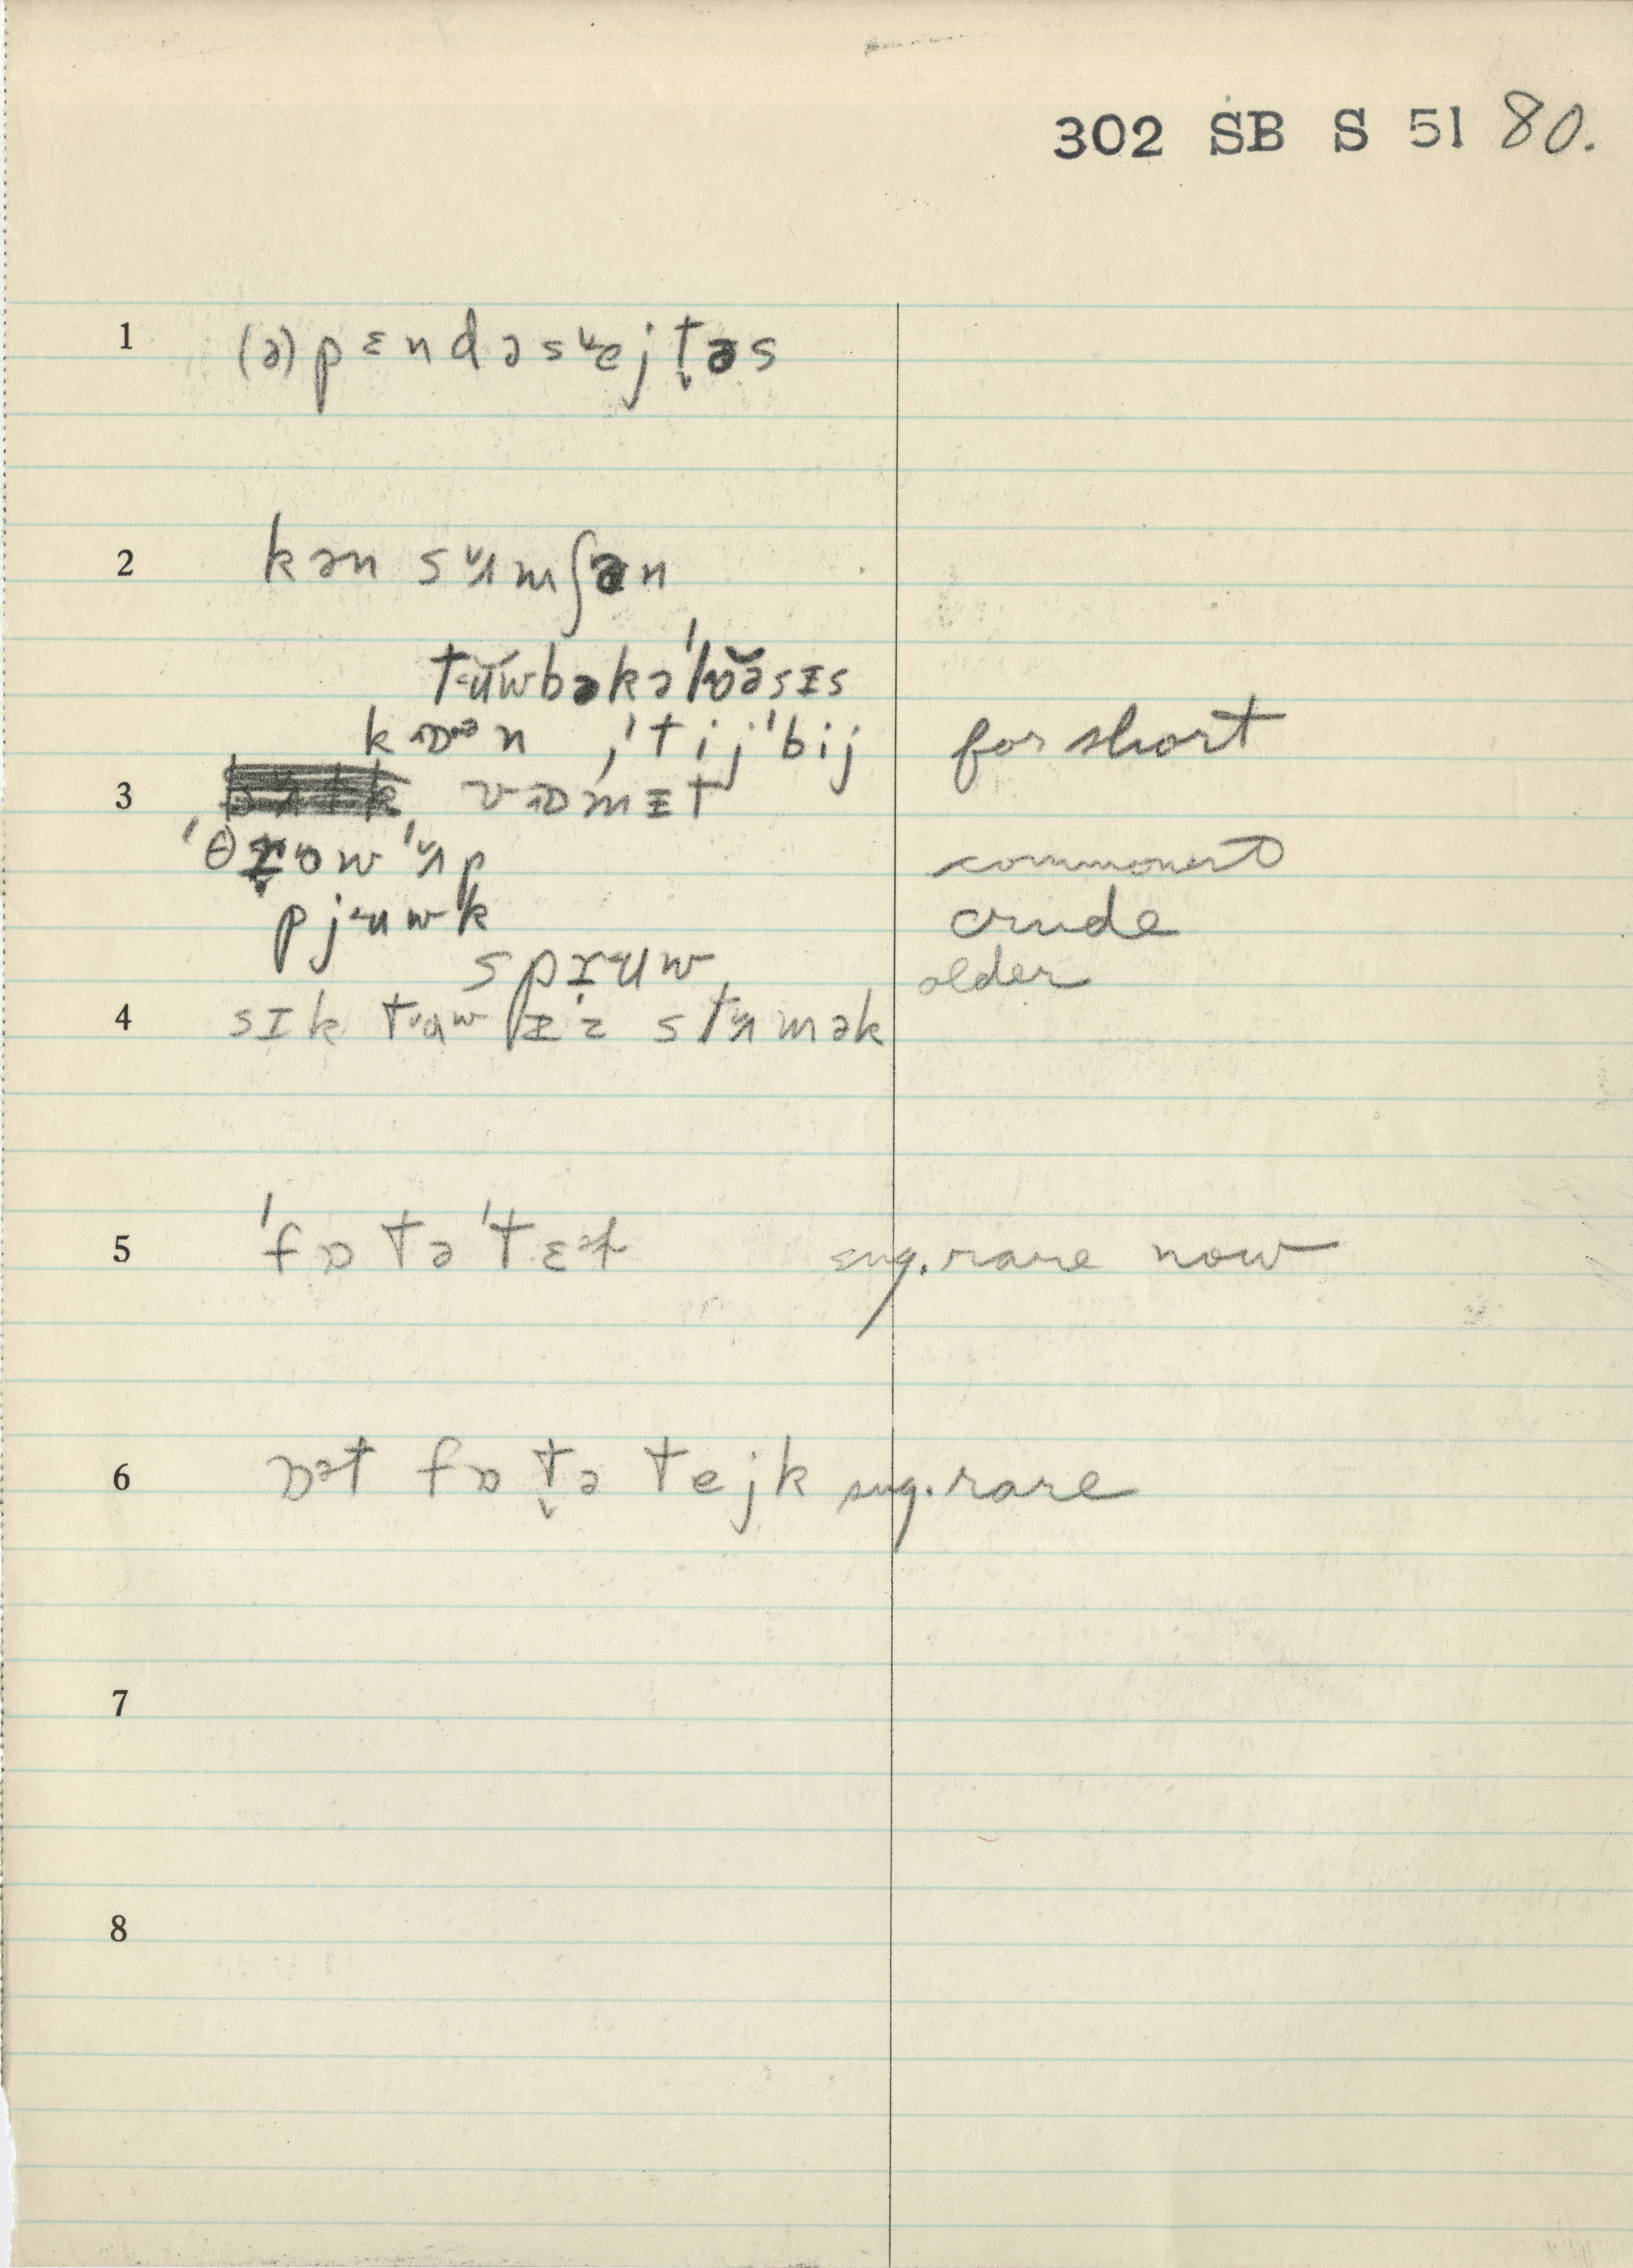 302 SB S 51 80.
1 (ə)pɛndəsejt̬əs
2 kən sʌmʃən
tʉ̆wbəkə'lŏəsɪs
kɒən ,'tij'bij for short
3 vɒmɪt
'θr̬ow'ʌp commonest
pjʉwk crude
sprʉw older
4 sɪk tʉw ɪz stʌmək
5 'fɒtə'tɛət sug. rare now
6 ɒət fɒt̬ə tejk sug. rare
7
8